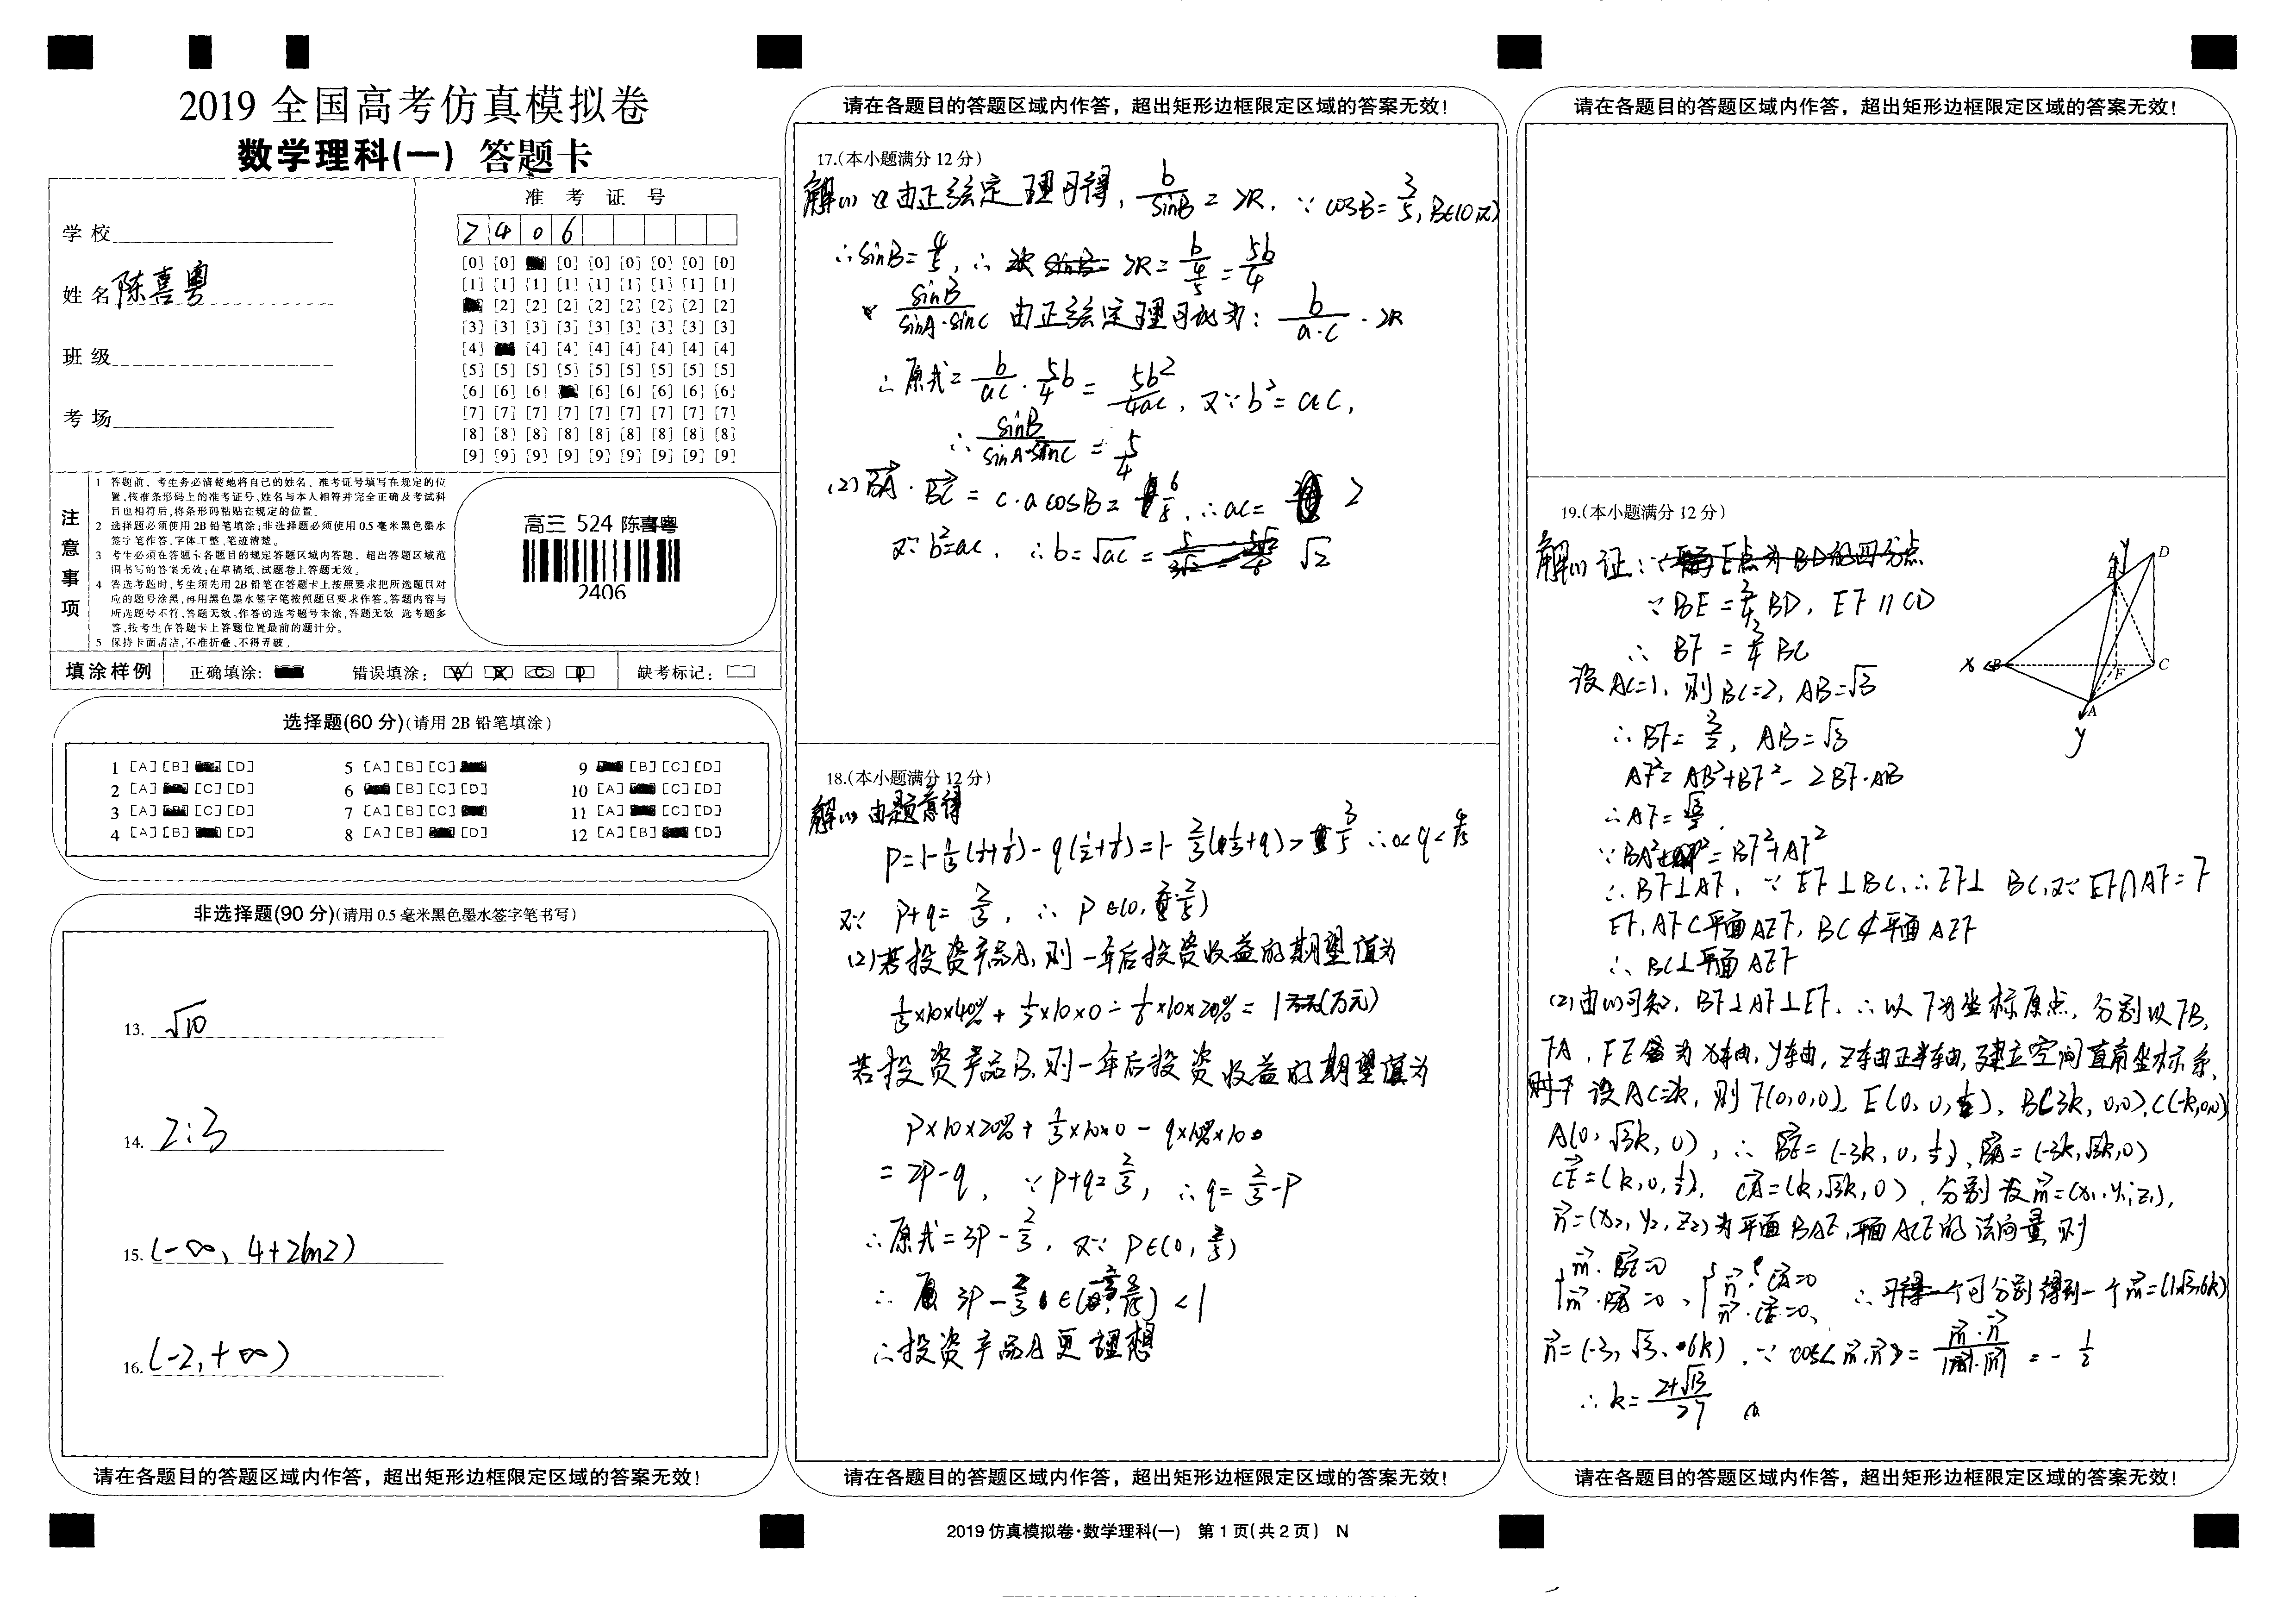 2019 全国高考仿真模拟卷
数学理科(一) 答题卡
学校
姓名 陈喜粤
班级
考场
准 考 证 号
2 4 0 6
[0] [0] [0] [0] [0] [0] [0] [0]
[1] [1] [1] [1] [1] [1] [1] [1] [1]
[2] [2] [2] [2] [2] [2] [2] [2]
[3] [3] [3] [3] [3] [3] [3] [3] [3]
[4] [4] [4] [4] [4] [4] [4] [4]
[5] [5] [5] [5] [5] [5] [5] [5] [5]
[6] [6] [6] [6] [6] [6] [6] [6]
[7] [7] [7] [7] [7] [7] [7] [7] [7]
[8] [8] [8] [8] [8] [8] [8] [8] [8]
[9] [9] [9] [9] [9] [9] [9] [9] [9]
注意事项
1 答题前，考生务必清楚地将自己的姓名、准考证号填写在规定的位
置,核准条形码上的准考证号、姓名与本人相符并完全正确及考试科
目也相符后,将条形码粘贴在规定的位置。
2 选择题必须使用2B铅笔填涂;非选择题必须使用0.5毫米黑色墨水
签字笔作答、字体工整、笔迹清楚。
3 考生必须在答题卡各题目的规定答题区域内答题，超出答题区域范
围书写的答案无效;在草稿纸、试题卷上答题无效。
4 答选考题时,考生须先用2B铅笔在答题卡上按照要求把所选题目对
应的题号涂黑,再用黑色墨水签字笔按照题目要求作答。答题内容与
所选题号不符,答题无效。作答的选考题号未涂,答题无效 选考题多
答,按考生在答题卡上答题位置最前的题计分。
5 保持卡面清洁,不准折叠、不得弄破。
高三 524 陈喜粤
2406
填涂样例 正确填涂: 错误填涂: 缺考标记:
选择题(60 分)(请用 2B 铅笔填涂)
1 [A] [B] [D] 5 [A] [B] [C] 9 [B] [C] [D]
2 [A] [C] [D] 6 [B] [C] [D] 10 [A] [C] [D]
3 [A] [C] [D] 7 [A] [B] [C] 11 [A] [C] [D]
4 [A] [B] [D] 8 [A] [B] [D] 12 [A] [B] [D]
非选择题(90 分)(请用 0.5 毫米黑色墨水签字笔书写)
13. √10
14. 2:3
15. (-∞, 4+2ln2)
16. (-2, +∞)
请在各题目的答题区域内作答，超出矩形边框限定区域的答案无效!
请在各题目的答题区域内作答，超出矩形边框限定区域的答案无效!
17.(本小题满分 12 分)
解(1) 由正弦定理可得, b/sinB = 2R. ∵ cosB = 3/5, B∈(0,π)
∴ sinB = 4/5, ∴ 2R = b/(4/5) = 5b/4
sinB/(sinA·sinC) 由正弦定理可化为: b/(a·c) · 2R
∴ 原式 = b/ac · 5b/4 = 5b²/4ac, 又∵ b² = ac,
∴ sinB/(sinA·sinC) = 5/4
(2) BA · BC = c·a cosB = 6/5, ∴ ac = 2
又∵ b²=ac, ∴ b=√ac = √2
18.(本小题满分 12 分)
解(1) 由题意得
又∵ P+q = 2/3, ∴ P∈(0,
(2)若投资产品A,则一年后投资收益的期望值为
若投资产品B,则一年后投资收益的期望值为
P×10×20% + 1/3×10×0 - q×10%×10
= 2P-q, ∵ P+q = 2/3, ∴ q = 2/3-P
∴ 原式 = 3P-2/3, 又∵
∴投资产品A更理想
请在各题目的答题区域内作答，超出矩形边框限定区域的答案无效!
请在各题目的答题区域内作答，超出矩形边框限定区域的答案无效!
19.(本小题满分 12 分)
解(1) 证:
∵ BE = 3/4 BD, EF // CD
∴ BF = 3/4 BC
设AC=1, 则BC=2, AB=√3
∴ BF = 3/2, AB=√3
AF²= AB²+BF²- 2BF·AB
∴ AF = √3/2
∵ BA² = BF²+AF²
∴ BF⊥AF, ∵ EF⊥BC, ∴ EF⊥BC, 又∵ EF∩AF=F
EF, AF⊂平面AEF, BC⊄平面AEF
∴ BC⊥平面AEF
x B E D F C A y
(2)由(1)可知, BF⊥AF⊥EF, ∴以F为坐标原点, 分别以FB,
FA, FE 为x轴, y轴, z轴正半轴, 建立空间直角坐标系,
A(0, √3k, 0), ∴ BE = (-3k, 0, 1/2), BA = (-3k, √3k, 0)
CE = (k, 0, 1/2), CA = (k, √3k, 0), 分别设m = (x₁, y₁, z₁),
n = (x₂, y₂, z₂)为平面BAE, 平面ACE的法向量,则
m·BE=0
m·BA=0, n·CA=0 n·CE=0,
n = (-3, √3, 6k), ∵ cos<m,n> = m·n/|m|·|n| = -1/2
请在各题目的答题区域内作答，超出矩形边框限定区域的答案无效!
2019 仿真模拟卷·数学理科(一) 第 1 页(共 2 页) N